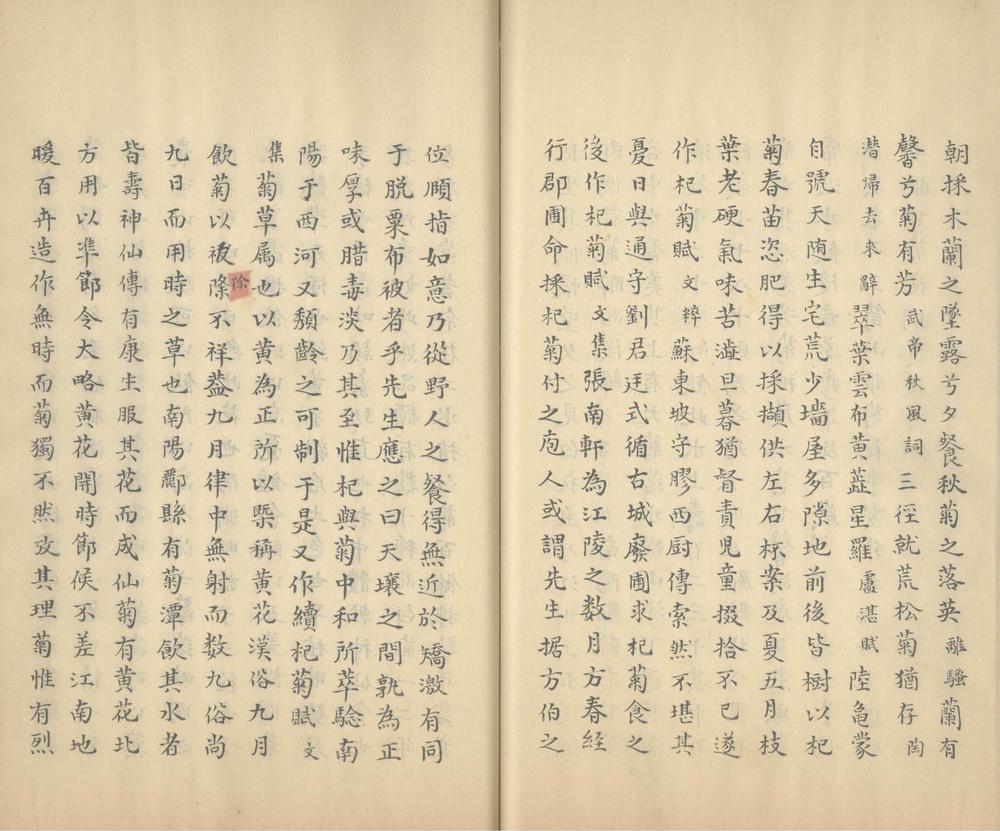 朝採木蘭之墜露兮夕餐秋菊之落英離騷蘭有
馨兮菊有芳武帝秋風詞三徑就荒松菊猶存陶
潛歸去來辭翠葉雲布黃蘂星羅盧湛賦陸龜蒙
自號天随生宅荒少墻屋多隙地前後皆樹以杞
菊春苗恣肥得以採擷供左右杯案及夏五月枝
葉老硬氣味苦澁旦暮猶督責児童掇拾不已遂
作杞菊賦文粹蘇東坡守膠西厨傳索然不堪其
憂日與通守劉君廷式循古城廢圃求杞菊食之
後作杞菊賦文集張南軒為江陵之数月方春經
行郡圃命採杞菊付之庖人或謂先生据方伯之
位頤指如意乃從野人之餐得無近於矯激有同
于脱粟布被者乎先生應之曰天壤之間孰為正
味厚或腊毒淡乃其至惟杞與菊中和所萃驗南
陽于西河又頽齡之可制于是又作續杞菊賦文
集菊草属也以黃為正所以槩稱黃花漢俗九月
飲菊以祓除不祥葢九月律中無射而数九俗尚
除
九日而用時之草也南陽酈縣有菊潭飲其水者
皆壽神仙傳有康生服其花而成仙菊有黃花北
方用以準節令大略黃花開時節候不差江南地
暖百卉造作無時而菊獨不然攷其理菊惟有烈